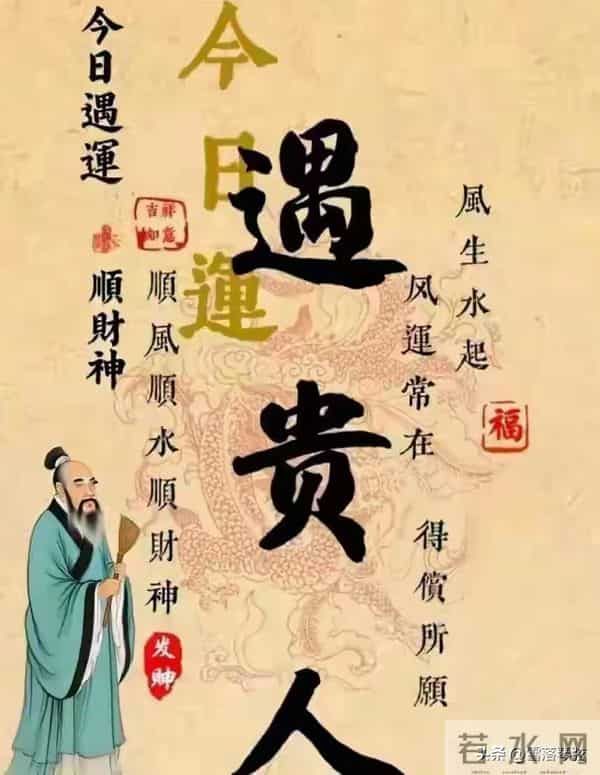 今日遇運
順財神
今日運
遇贵人
吉祥
如意
順風順水順財神
发财
風生水起
风運常在
得償所願
福
若水网
头条@雪落琴弦